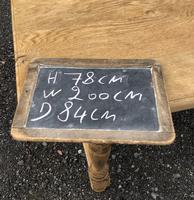 H 78CM
W 200CM
D 84CM